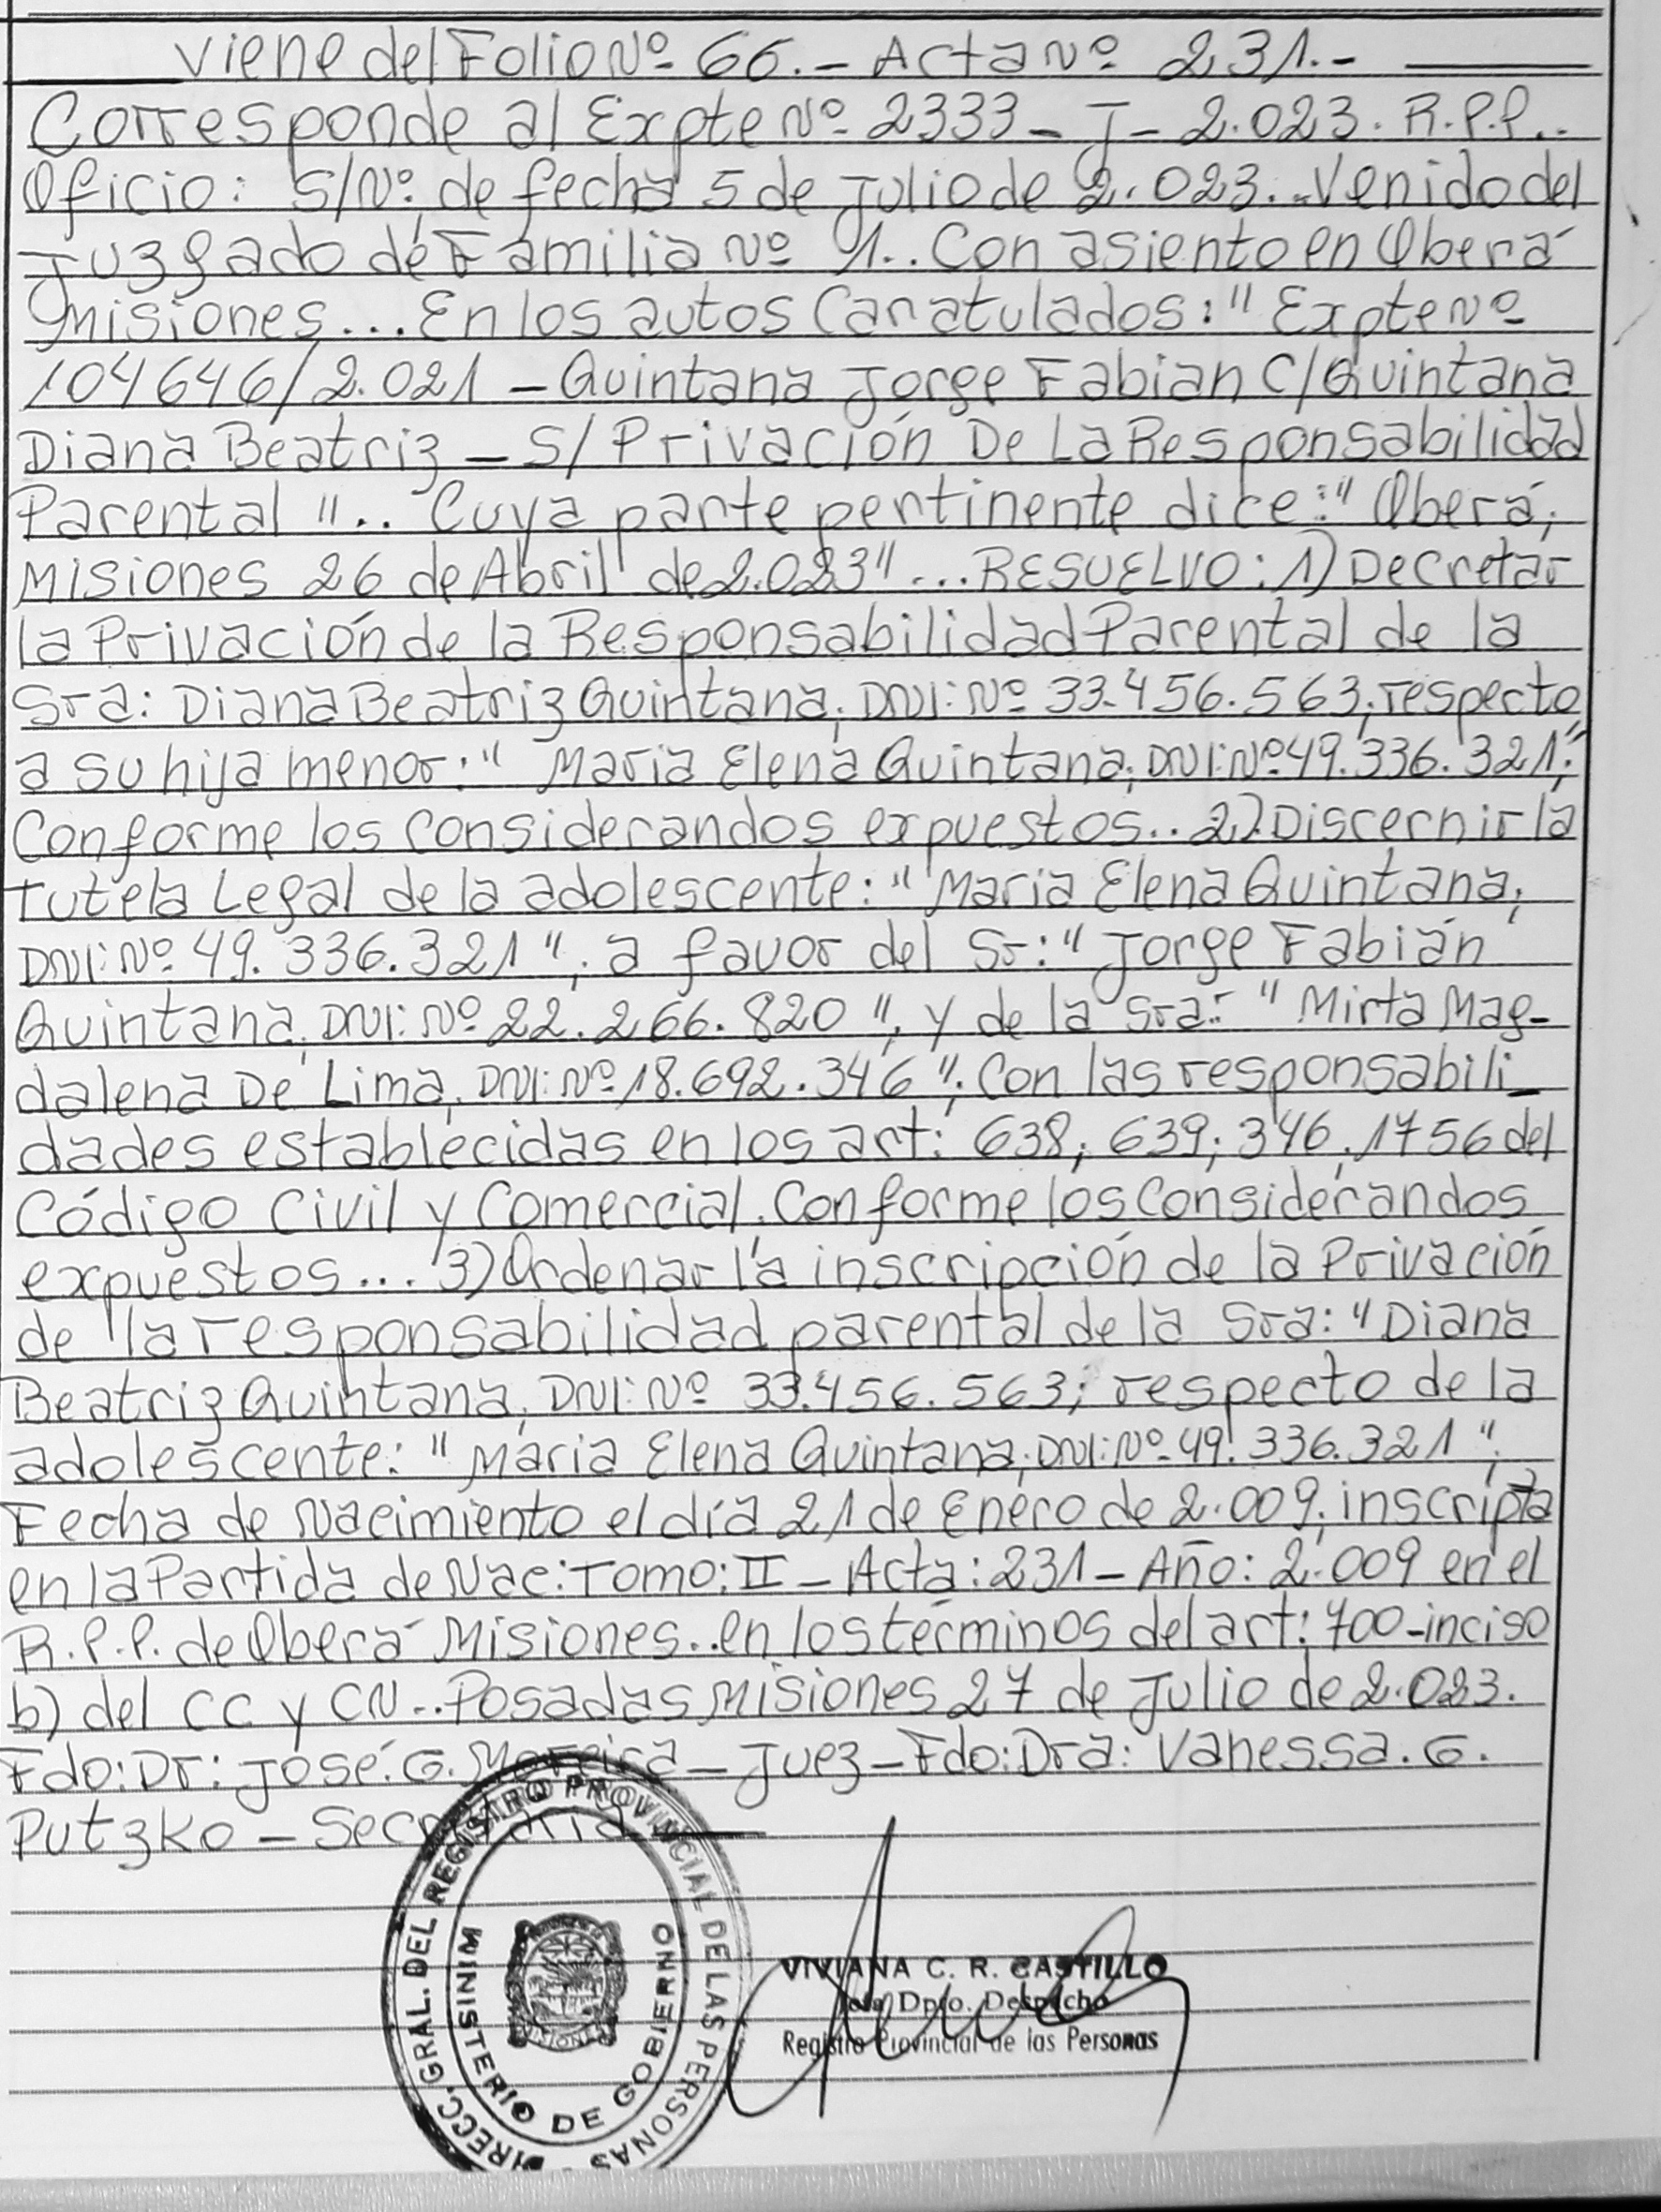 Viene del Folio Nº 66.- Acta Nº 231.-
Corresponde al Expte Nº 2333- J - 2.023. R.P.P..
Oficio: S/Nº, de fecha 5 de Julio de 2.023..Venido del
Juzgado de Familia Nº 1.. Con asiento en Oberá
Misiones... En los autos Caratulados: " Expte Nº
104646/2.021 - Quintana Jorge Fabian C/Quintana
Diana Beatriz - S/Privación De La Responsabilidad
Parental ".. Cuya parte pertinente dice:" Oberá;
Misiones 26 de Abril de 2.023"... RESUELVO: 1) Decretar
la Privación de la Responsabilidad Parental de la
Sra: Diana Beatriz Quintana; DNI: Nº 33.456.563; respecto
a su hija menor: " Maria Elena Quintana; DNI: Nº 49.336.321";
Conforme los considerandos expuestos.. 2). Discernir la
Tutela Legal de la adolescente: " Maria Elena Quintana;
DNI: Nº 49.336.321 "; a favor del Sr: " Jorge Fabián
Quintana; DNI: Nº 22.266.820 ", y de la Sra: " Mirta Mag-
dalena De Lima; DNI: Nº 18.692.346 "; Con las responsabili-
dades establecidas en los art: 638; 639; 346; 1756 del
Código Civil y Comercial. Conforme los Considerandos
expuestos... 3) Ordenar la inscripción de la Privación
de la responsabilidad parental de la Sra: "Diana
Beatriz Quintana; DNI: Nº 33.456.563; respecto de la
adolescente: " Maria Elena Quintana; DNI: Nº 49.336.321 ";
Fecha de Nacimiento el día 21 de Enero de 2.009; inscripta
en la Partida de Nac: Tomo: II - Acta: 231 - Año: 2.009 en el
R.P.P. de Oberá Misiones.. en los términos del art: 700-inciso
b) del CC y CN.. Posadas Misiones 27 de Julio de 2.023.
Fdo: Dr: José. G. Moreira - Juez - Fdo: Dra: Vanessa. G.
Putzko - Secretaria
DIRECC. GRAL. DEL REGISTRO PROVINCIAL DE LAS PERSONAS
MINISTERIO DE GOBIERNO
MISIONES
VIVIANA C. R. CASTILLO
Jefa Dpto. Despacho
Registro Provincial de las Personas